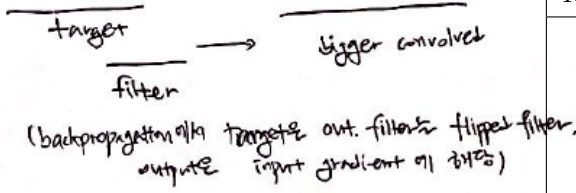 target
bigger convolved
filter
(backpropagation에서 target은 out. filter는 flipped filter,
output은 input gradient에 해당)